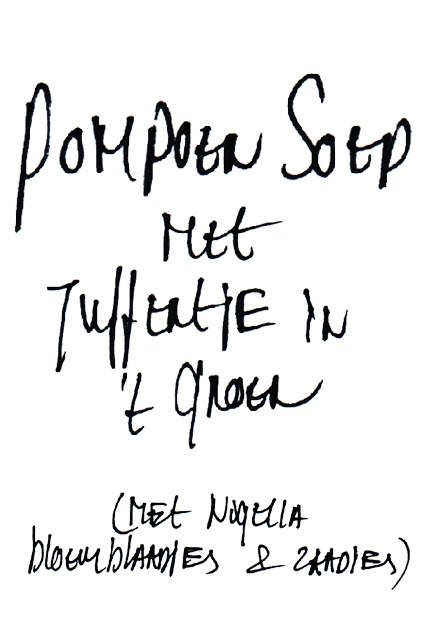 Pompoen Soep
met
Juffertje in
't Groen
(met Nigella
bloemblaadjes & zaadjes)